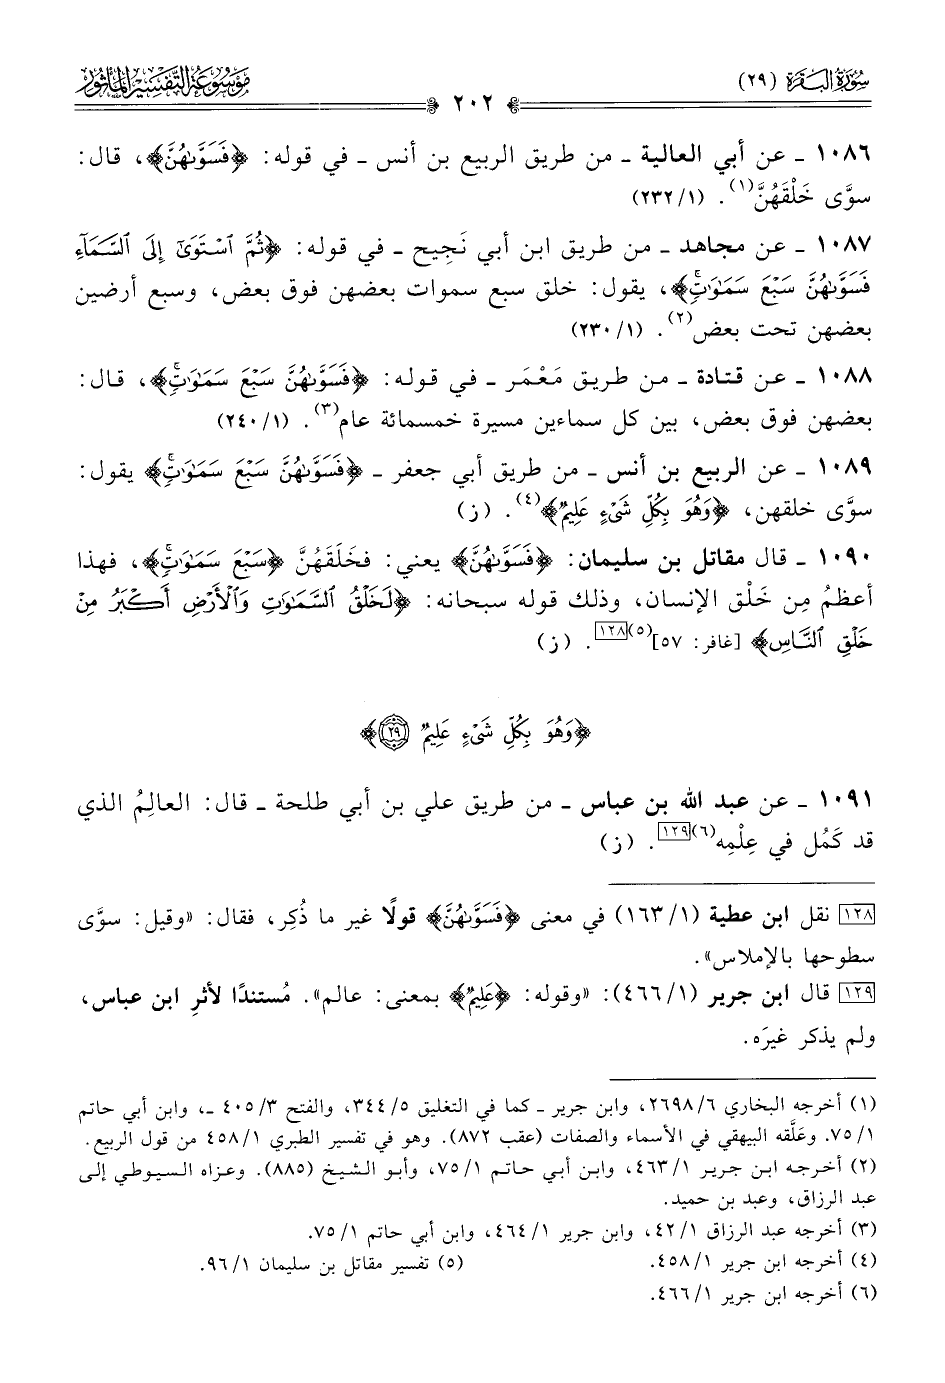 سُورَةُ البَقَرَة (٢٩)
مَوْسُوعَةُ التَّفْسِيرِ المَأْثُور
٢٠٢
١٠٨٦ ـ عن أبي العالية ـ من طريق الربيع بن أنس ـ في قوله: ﴿فَسَوَّىٰهُنَّ﴾، قال:
سوَّى خَلْقَهُنَّ(١). (١/ ٢٣٢)
١٠٨٧ ـ عن مجاهد ـ من طريق ابن أبي نَجِيح ـ في قوله: ﴿ثُمَّ ٱسْتَوَىٰٓ إِلَى ٱلسَّمَآءِ
فَسَوَّىٰهُنَّ سَبْعَ سَمَٰوَٰتٍۚ﴾، يقول: خلق سبع سموات بعضهن فوق بعض، وسبع أرضين
بعضهن تحت بعض(٢). (١/ ٢٣٠)
١٠٨٨ ـ عن قتادة ـ من طريق مَعْمَر ـ في قوله: ﴿فَسَوَّىٰهُنَّ سَبْعَ سَمَٰوَٰتٍۚ﴾، قال:
بعضهن فوق بعض، بين كل سماءين مسيرة خمسمائة عام(٣). (١/ ٢٤٠)
١٠٨٩ ـ عن الربيع بن أنس ـ من طريق أبي جعفر ـ ﴿فَسَوَّىٰهُنَّ سَبْعَ سَمَٰوَٰتٍۚ﴾ يقول:
سوَّى خلقهن، ﴿وَهُوَ بِكُلِّ شَىْءٍ عَلِيمٌ﴾(٤). (ز)
١٠٩٠ ـ قال مقاتل بن سليمان: ﴿فَسَوَّىٰهُنَّ﴾ يعني: فخَلَقَهُنَّ ﴿سَبْعَ سَمَٰوَٰتٍۚ﴾، فهذا
أعظمُ مِن خَلْق الإنسان، وذلك قوله سبحانه: ﴿لَخَلْقُ ٱلسَّمَٰوَٰتِ وَٱلْأَرْضِ أَكْبَرُ مِنْ
خَلْقِ ٱلنَّاسِ﴾ [غافر: ٥٧](٥)[١٢٨]. (ز)
﴿وَهُوَ بِكُلِّ شَىْءٍ عَلِيمٌ ٢٩﴾
١٠٩١ ـ عن عبد الله بن عباس ـ من طريق علي بن أبي طلحة ـ قال: العالِمُ الذي
قد كَمُل في عِلْمِه(٦)[١٢٩]. (ز)
[١٢٨] نقل ابن عطية (١/ ١٦٣) في معنى ﴿فَسَوَّىٰهُنَّ﴾ قولًا غير ما ذُكِر، فقال: «وقيل: سوَّى
سطوحها بالإملاس».
[١٢٩] قال ابن جرير (١/ ٤٦٦): «وقوله: ﴿عَلِيمٌ﴾ بمعنى: عالم». مُستندًا لأثرِ ابن عباس،
ولم يذكر غيرَه.
(١) أخرجه البخاري ٦/ ٢٦٩٨، وابن جرير ـ كما في التغليق ٥/ ٣٤٤، والفتح ٣/ ٤٠٥ ـ، وابن أبي حاتم
١/ ٧٥. وعَلَّقه البيهقي في الأسماء والصفات (عقب ٨٧٢). وهو في تفسير الطبري ١/ ٤٥٨ من قول الربيع.
(٢) أخرجه ابن جرير ١/ ٤٦٣، وابن أبي حاتم ١/ ٧٥، وأبو الشيخ (٨٨٥). وعزاه السيوطي إلى
عبد الرزاق، وعبد بن حميد.
(٣) أخرجه عبد الرزاق ١/ ٤٢، وابن جرير ١/ ٤٦٤، وابن أبي حاتم ١/ ٧٥.
(٤) أخرجه ابن جرير ١/ ٤٥٨.
(٥) تفسير مقاتل بن سليمان ١/ ٩٦.
(٦) أخرجه ابن جرير ١/ ٤٦٦.